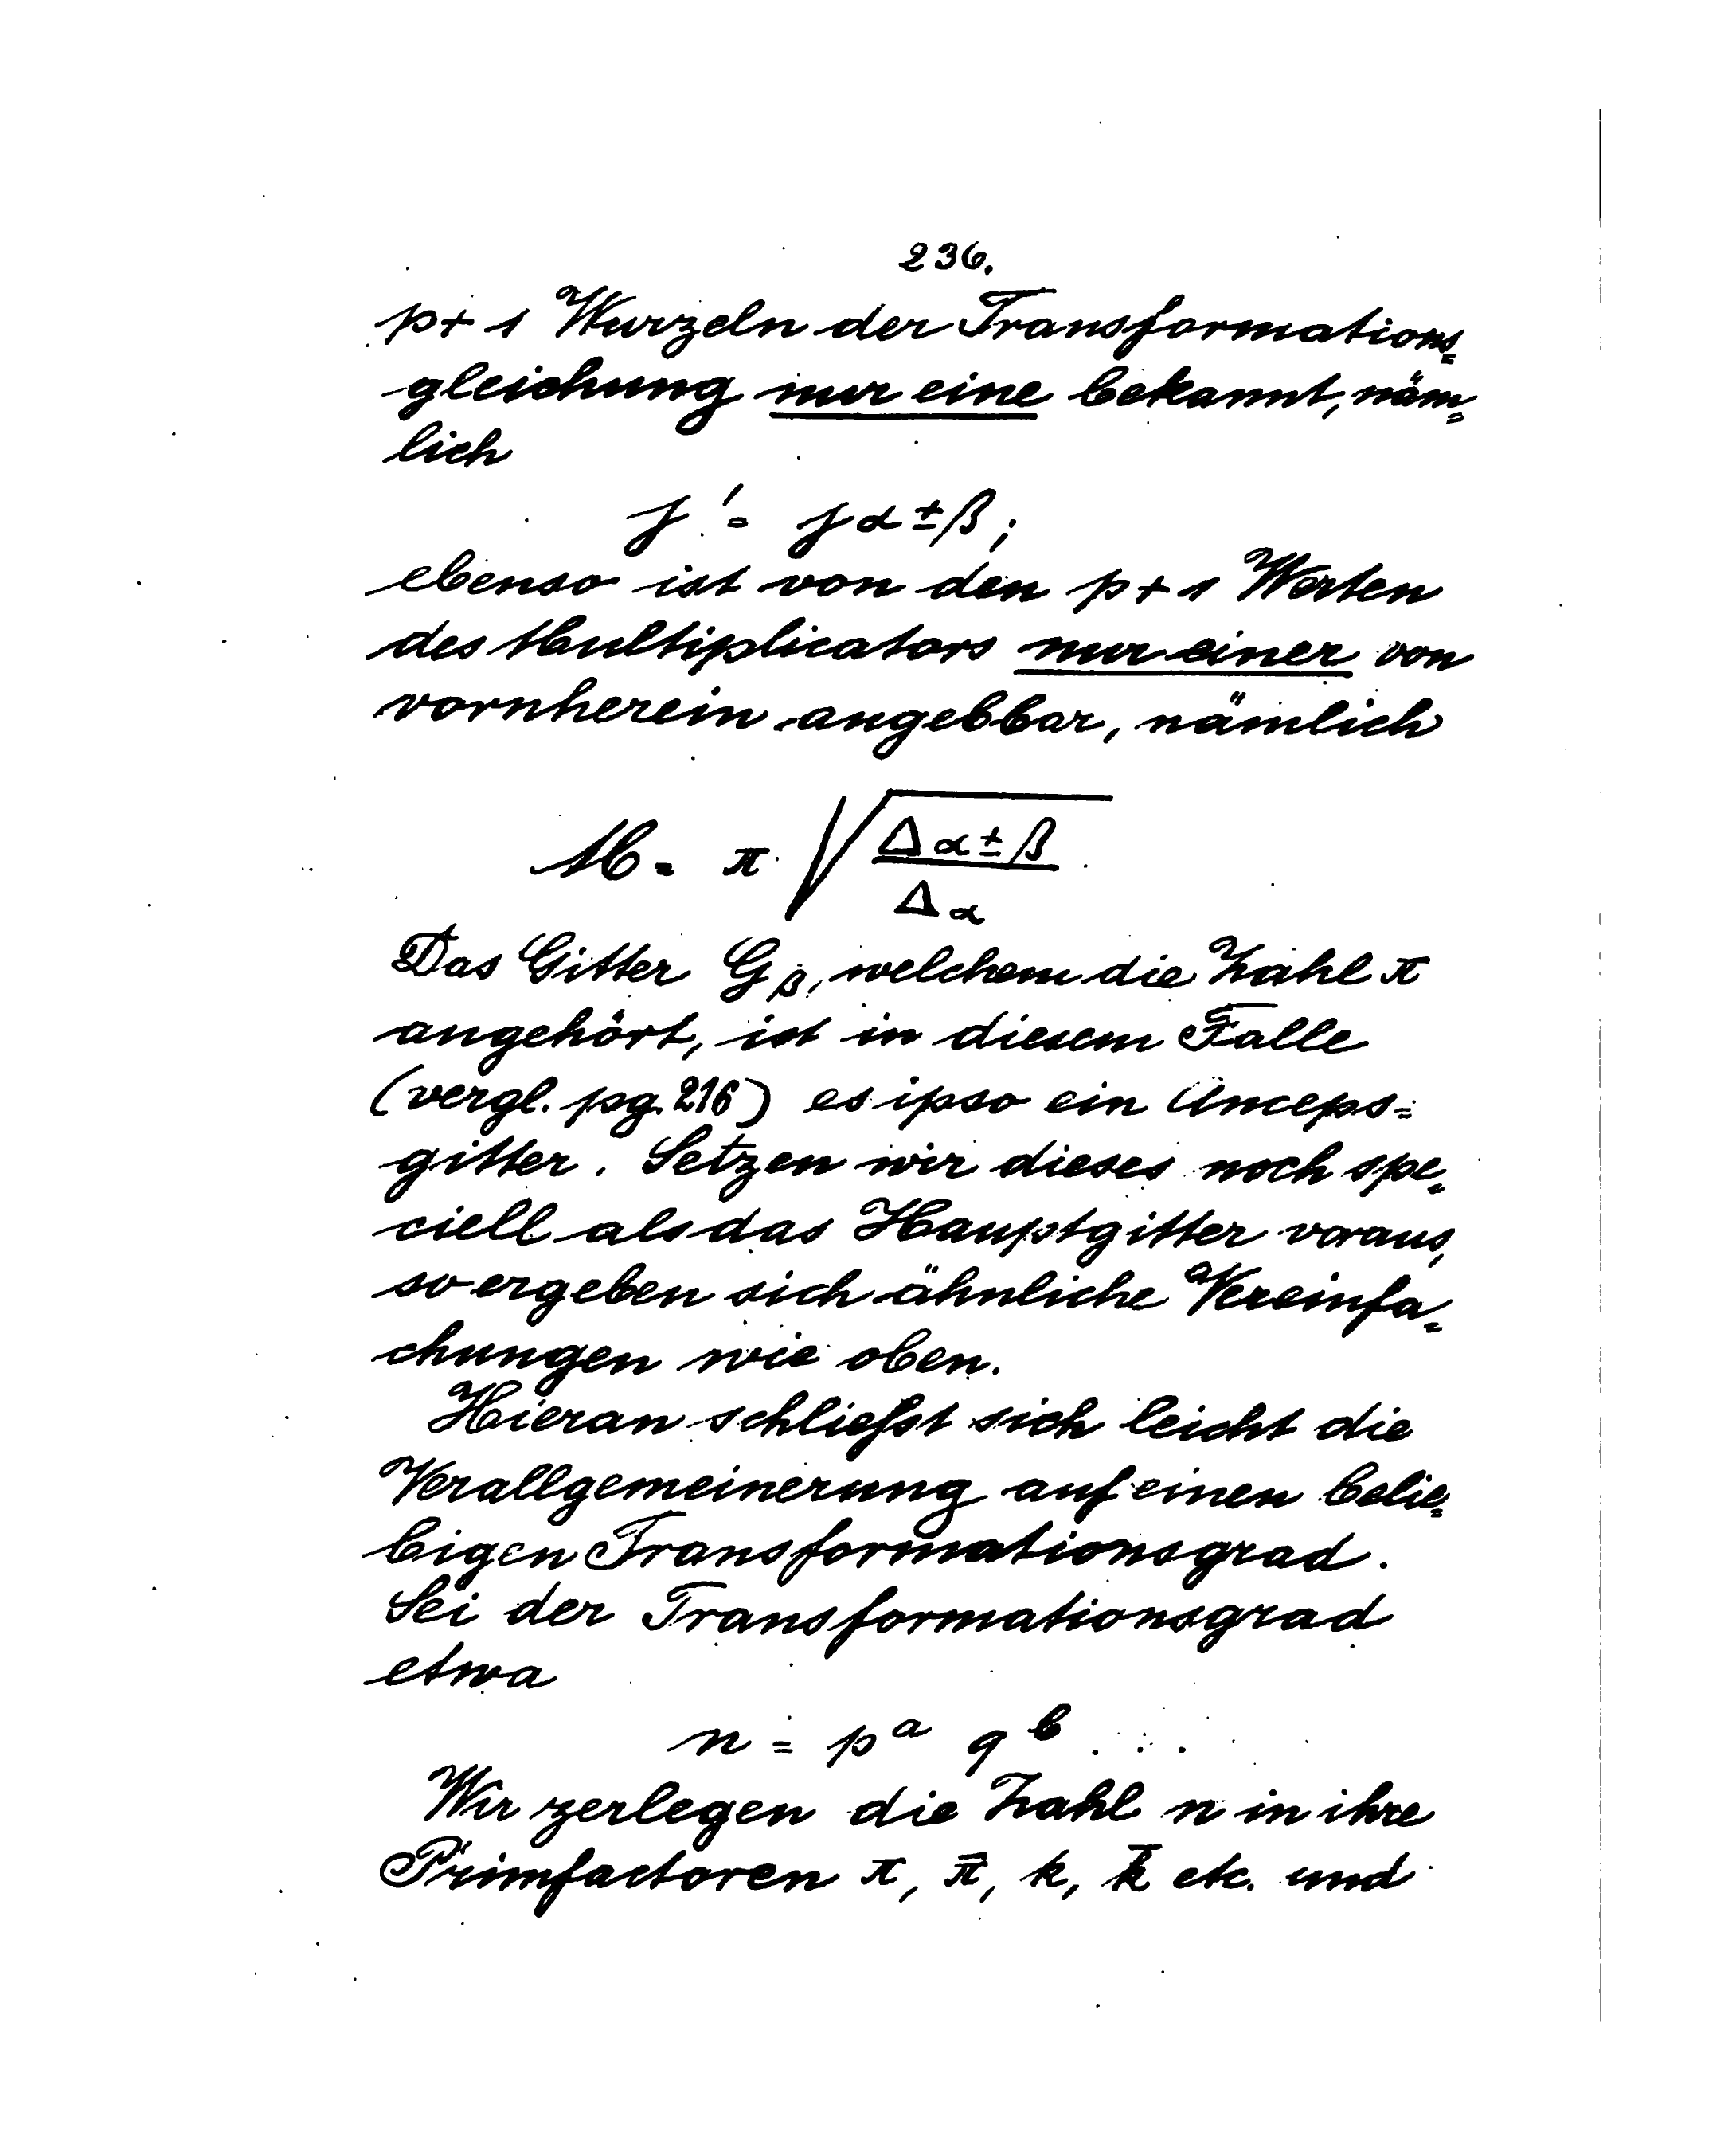 236.
p+1 Wurzeln der Transformations=
gleichung nur eine bekannt, näm=
lich
j' = j α ± β ;
ebenso ist von den p+1 Werten
des Multiplicators nur einer von
vornherein angebbar, nämlich
M = π √(Δ α ± β / Δ α)
Das Gitter G β, welchem die Zahl π
angehört, ist in diesem Falle
(vergl. pg. 216) es ipso ein Anceps=
gitter. Setzen wir dieses noch spe=
ciell als das Hauptgitter voraus,
so ergeben sich ähnliche Vereinfa=
chungen wie oben.
Hieran schließt sich leicht die
Verallgemeinerung auf einen belie=
bigen Transformationsgrad.
Sei der Transformationsgrad
etwa
n = p^a q^b . . .
Wir zerlegen die Zahl n in ihre
Primfactoren π, π̄, k, k̄ etc. und